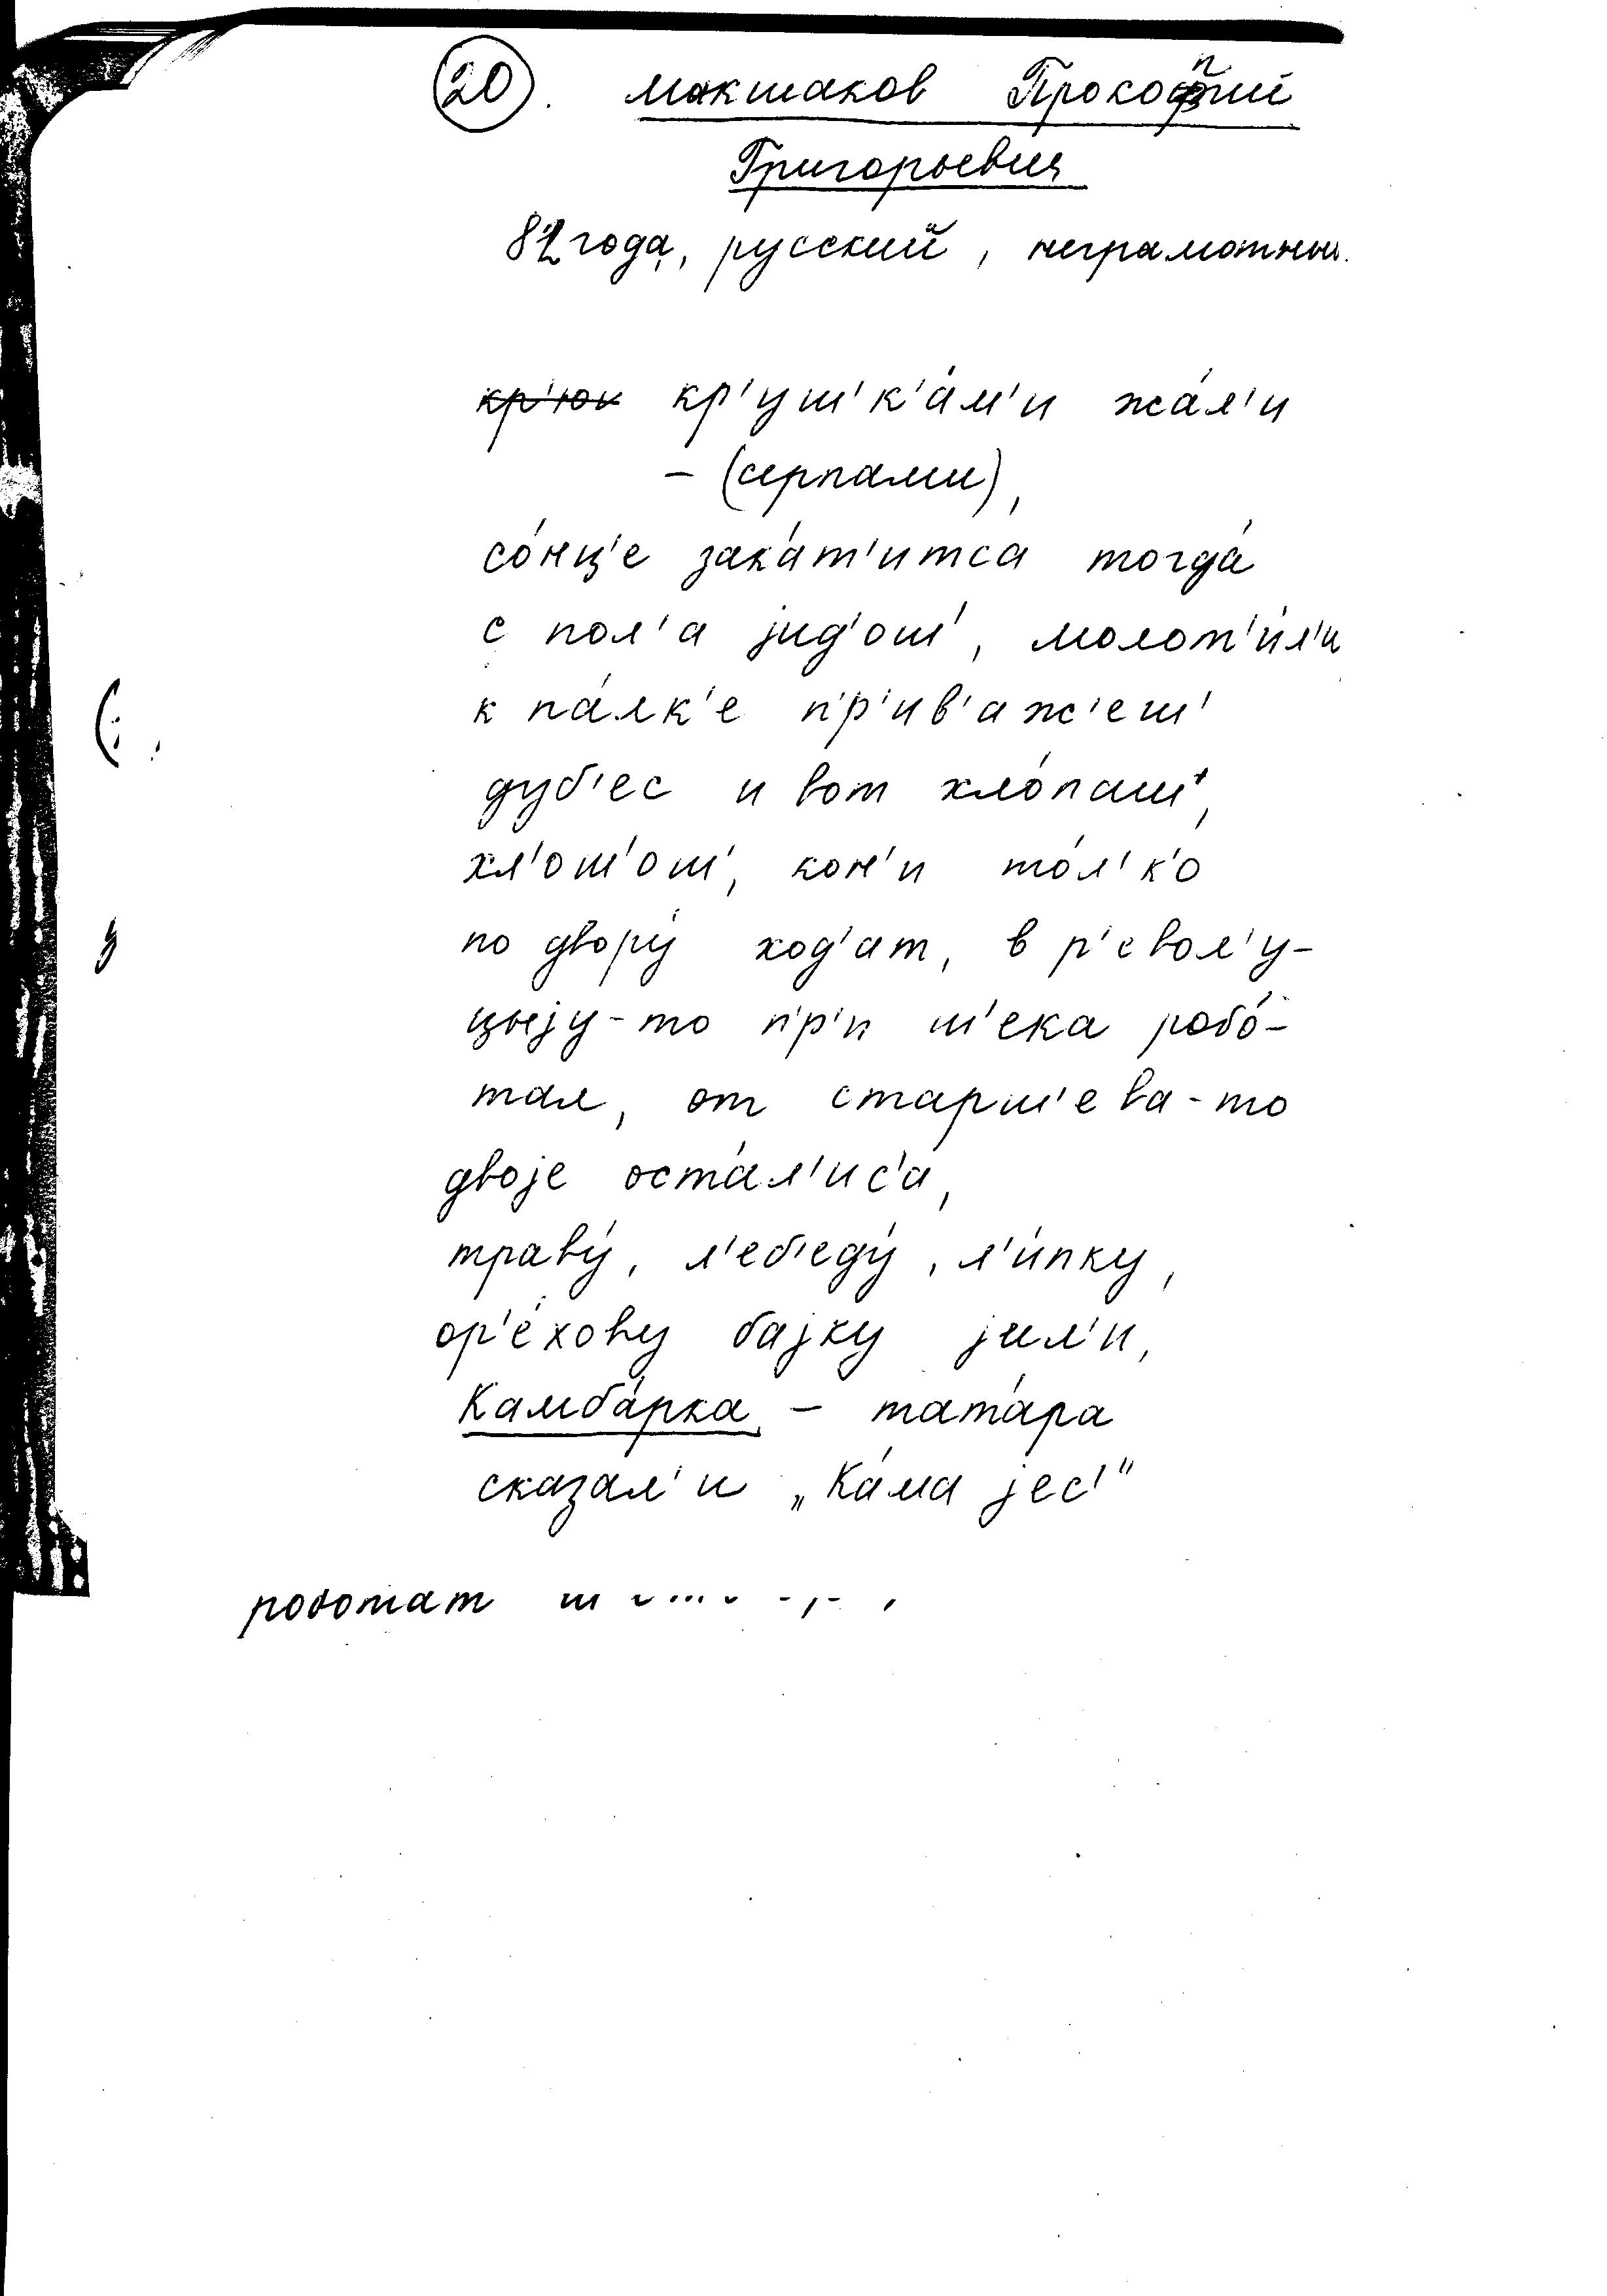 20. Макшаков Прокопий
Григорьевич
82 года, русский, неграмотный.
кр'юк кр'уш'к'а́м'и жа́л'и
– (серпами),
со́нц'е зака́т'итса тогда́
с пол'а jид'ош', молот'и́л'и
к па́лк'е п'р'ив'аж'еш'
дуб'ес и вот хло́паш',
хл'ош'ош', кон'и то́л'к'о
по двору́ ход'ат, в р'евол'у-
цыjу-то п'р'и ш'ека робо́-
тал, от старш'ева-то
двоjе оста́л'ис'а,
траву́, л'еб'еду́, л'и́пку,
ор'е́хову баjку jил'и,
Камба́рка – тата́ра
сказал'и „Ка́ма jес'"
роботат